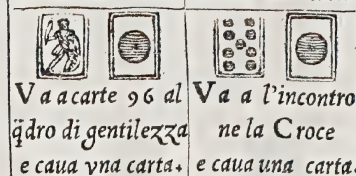 Va a carte 96 al
q̃dro di gentilezza
e caua vna carta.
Va a l'incontro
ne la Croce
e caua una carta.